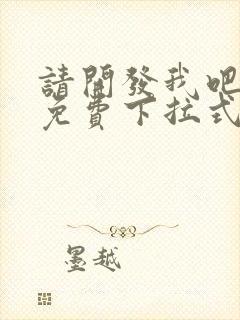 請開發我吧
免費下拉式
墨越